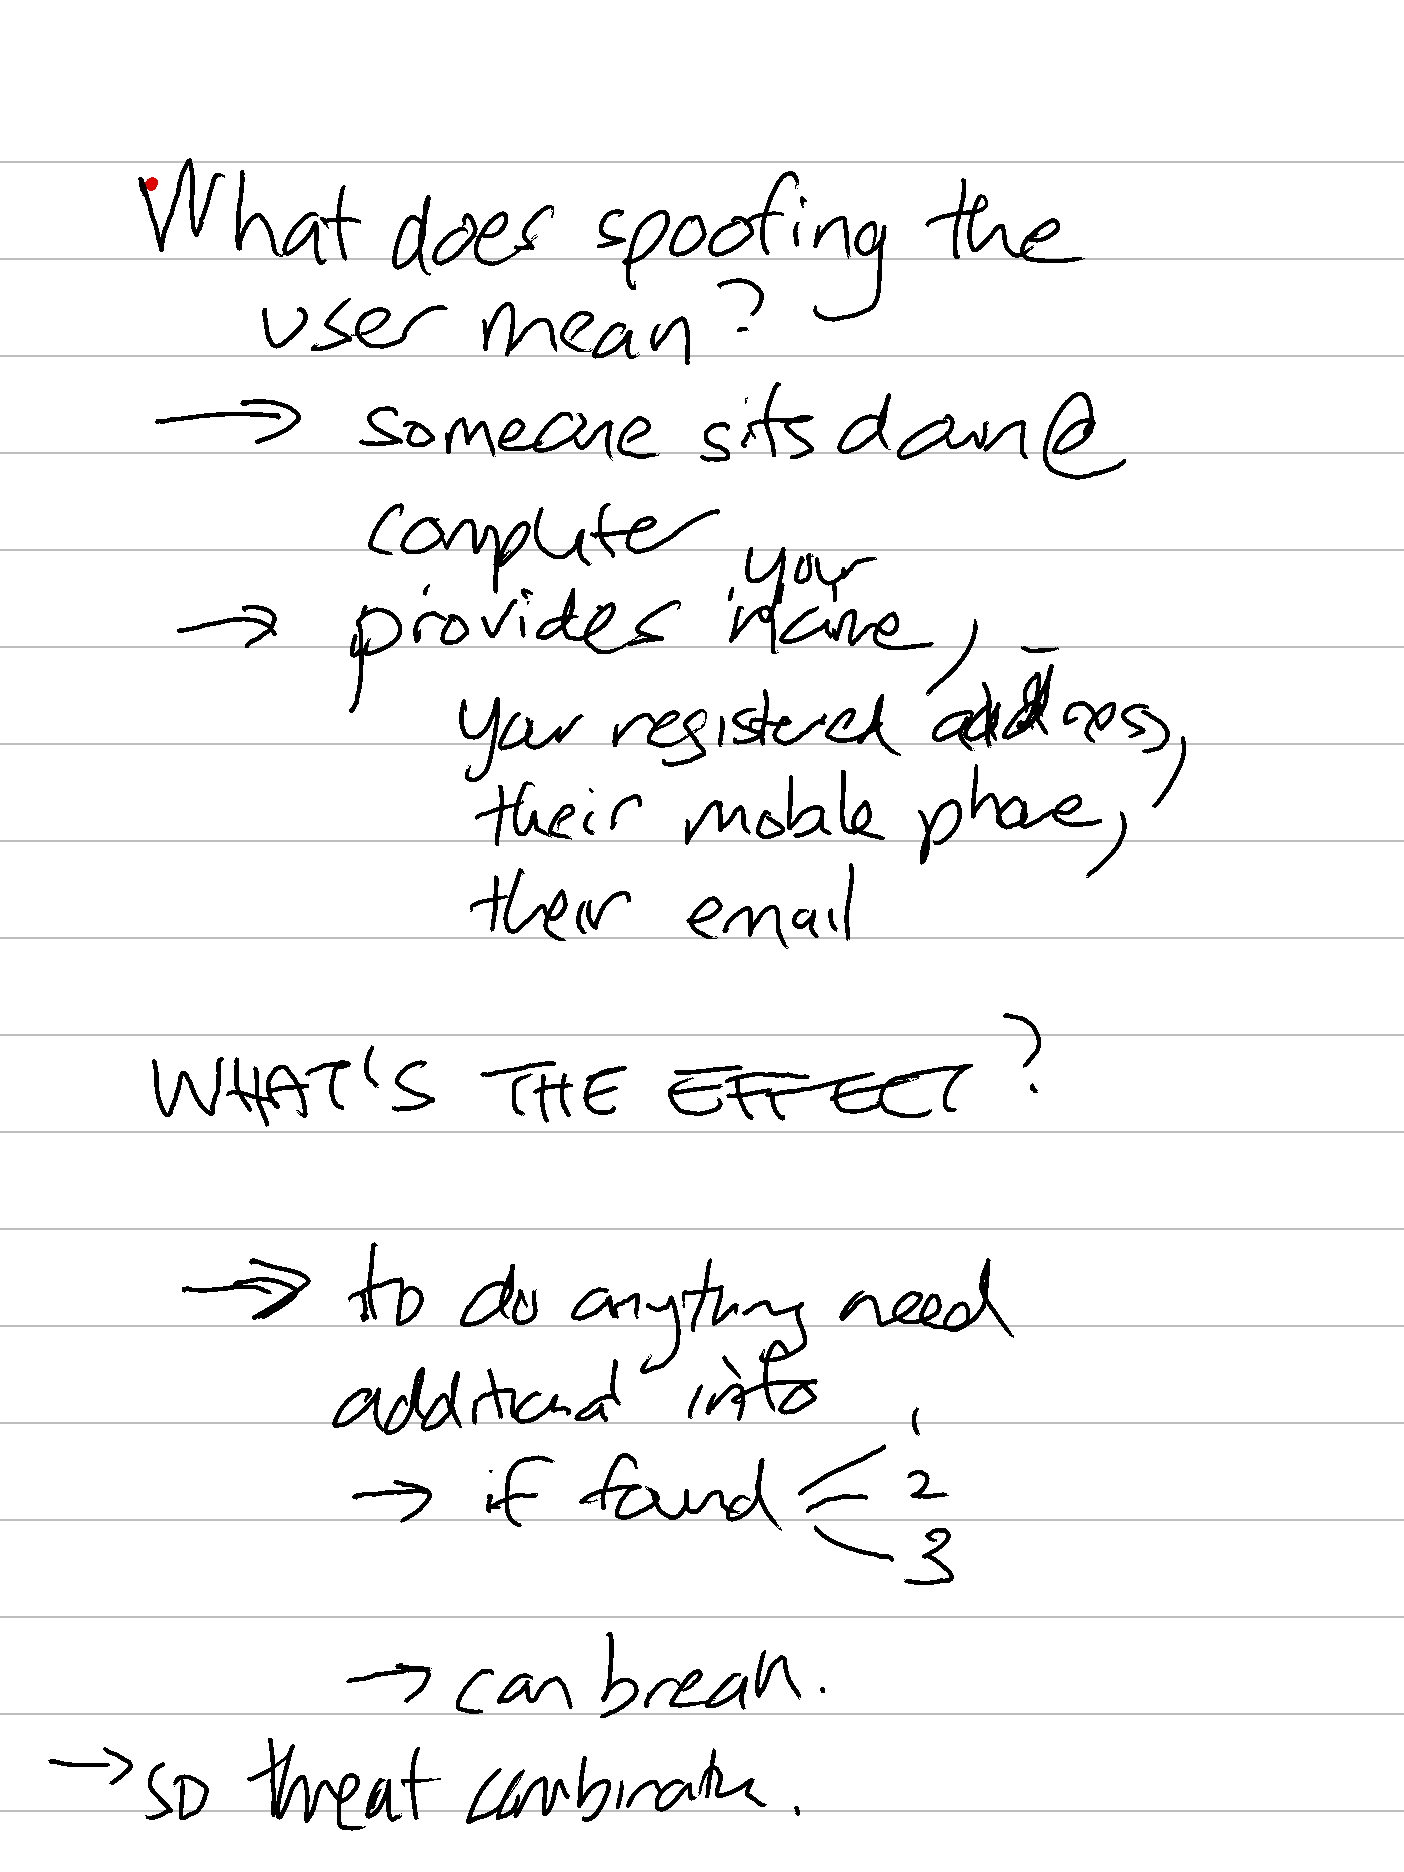 What does spoofing the
user mean?
→ someone sits down @
computer
your
→ provides name,
your registered address,
their mobile phone,
their email
WHAT'S THE EFFECT?
→ to do anything need
additional info
1
→ if found 2
3
→ can break.
→ so threat combination.